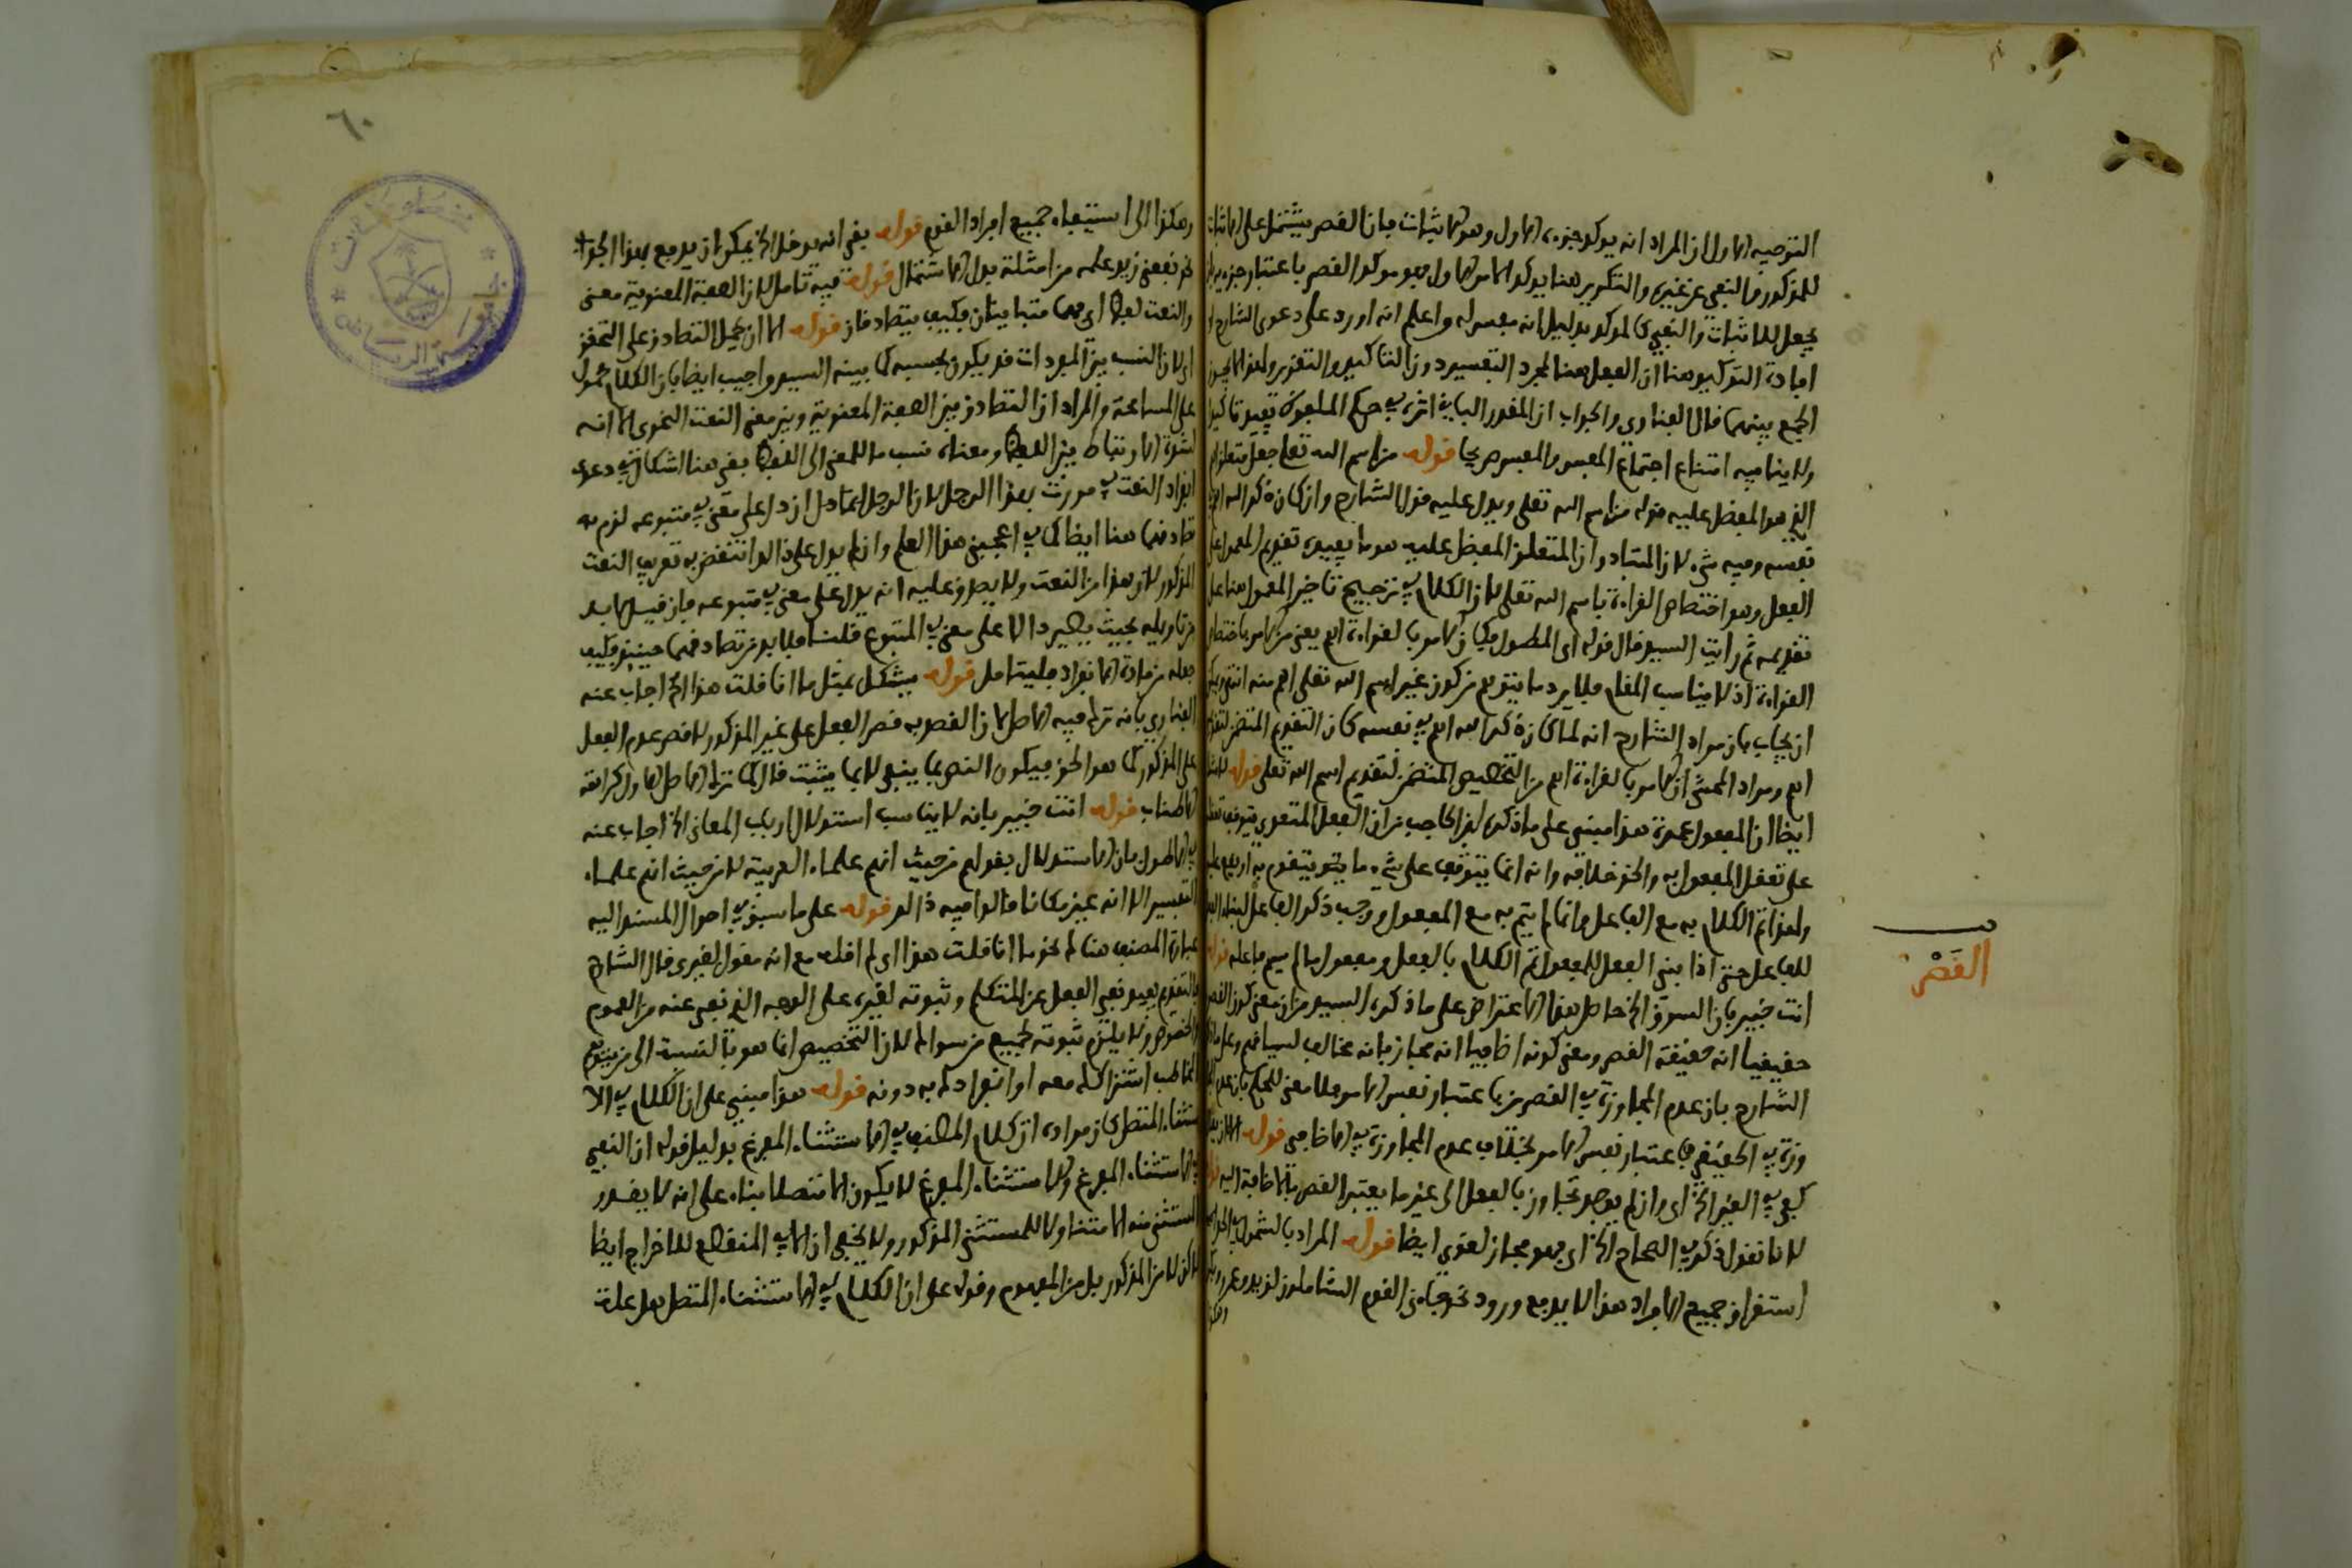 التوجيه الاول ان المراد انه يوكد جزءه الاول وهو الاثبات فان القصر يشتمل على الاثبات
للمذكور والنفي عن غيره والتكرير هنا يوكد الامر الاول فهو موكد القصر باعتبار جزءيه
يجعل للاثبات والنفي كالموكد بدليل انه مفسر له واعلم انه اورد على دعوى الشارح
افادة التوكيد هنا ان الفعل هنا لمجرد التفسير دون التاكيد والتقرير ولهذا لا يجوز
الجمع بينهما قال الفناري والجواب ان المقدر الباقي اثره في حكم الملفوظ فيفيد تاكيدا
ولا ينافيه امتناع اجتماع المفسر والمفسر صريحا قوله من اسم الله تعلى جعل متعلق
الذي هو المفضل عليه قوله من اسم الله تعلى ويدل عليه قول الشارح وان كان ذكر الله اهم
نفسه وفيه شيء لان المتبادر ان المتعلق المفضل عليه هو ما يفيده تقديم المعمول على
الفعل وهو اختصاص القراءة باسم الله تعلى لان الكلام في ترجيح تاخير المعمول هنا على
تقديمه ثم رايت السيد قال قوله اي المطول فكان الامر بالقراءة اهم يعني من الامر باختصاص
القراءة اذ لا يناسب المقام فلا يرد ما يتوهم من كون غير اسم الله تعلى اهم منه انتهى
ان يجاب بان مراد الشارح انه لما كان ذكر الله اهم في نفسه كان التقديم المتضمن لتقديم
اهم ومراد المحشي ان الامر بالقراءة اهم من التخصيص المتضمن لتقديم اسم الله تعلى قوله
ايضا ان المفعول عمدة هذا مبني على ما ذكره ابن الحاجب من ان الفعل المتعدي يتوقف تعقله
على تعقل المفعول به والحق خلافه وانه انما يتوقف على شيء ما يتقوم به او يقع عليه
ولهذا تم الكلام به مع الفاعل وانما لم يتم به مع المفعول ووجب ذكر الفاعل لبناء الفعل
للفاعل حتى اذا بني الفعل للمفعول تم الكلام بالفعل ومفعول ما لم يسم فاعله قوله
انت خبير بان السوق الخ حاصل هذا الاعتراض على ما ذكره السيد من ان معنى كون القصر
حقيقيا انه حقيقة القصر ومعنى كونه اضافيا انه مجاز بانه مخالف لسياقهم
الشارح بان عدم المجاوزة في القصرين باعتبار نفس الامر فلا معنى للحكم بان عدم
وزة في الحقيقي باعتبار نفس الامر بخلاف عدم المجاوزة في الاضافي قوله الا ان يقال
كفى في الغير الخ اي وان لم يوجد تجاوز بالفعل الى غير ما يعتبر القصر بالاضافة اليه
لانا نقول ذكر في الصحاح الخ اي فهو مجاز لغوي ايضا قوله المراد بالشمول
استغراق جميع الافراد هذا لا يدفع ورود نحو جاءني القوم الشاملون لزيد وعمرو
القصر
٦٠
وهكذا الى استيفاء جميع افراد القوم قوله بقي انه يدخل الخ يمكن ان يدفع بهذا الجواب
نحو نفعني زيد علمه من امثلة بدل الاشتمال قوله فيه تامل لان الصفة المعنوية معنى
والنعت لفظ اي فهما متباينان فكيف يتصادقان قوله الا ان يحمل التصادق على التحقق
اي لان النسب بين المفردات قد يكون بحسبه كما بينه السيد واجيب ايضا بان الكلام محمول
على المسامحة والمراد ان التصادق بين الصفة المعنوية وبين معنى النعت النحوي الا انه
لشدة الارتباط بين اللفظ ومعناه نسب ما للمعنى الى اللفظ بقي هنا اشكال في دعوى
انفراد النعت في مررت بهذا الرجل لان الرجل اما دل ان دل على معنى في متبوعه لزم
تصادقهما هنا ايضا كما في اعجبني هذا العلم وان لم يدل على ذلك انتقض به تعريف النعت
المذكور لان هذا من النعت ولا يصدق عليه انه يدل على معنى في متبوعه فان قيل لا بد
من تاويله بحيث يصير دالا على معنى في المتبوع قلنا فلا بد من تصادقهما حينئذ فكيف
جعله من مادة الانفراد فليتامل قوله يشكل بمثل ما انا قلت هذا الخ اجاب عنه
الفناري بانه ترك فيه الاصل لان القصد به قصر الفعل على غير المذكور لا قصر عدم الفعل
على المذكور كما هو الحق فيكون النص بما ينفى لا بما يثبت قال كما ترك الاصل الاول كراهة
الاطناب قوله انت خبير بانه لا يناسب استدلال ارباب المعاني الخ اجاب عنه
في الاطول بان الاستدلال بقولهم من حيث انهم علماء العربية لا من حيث انهم علماء
التفسير الا انه عبر مكانا قالوا فيه ذلك قوله على ما سبق في احوال المسند اليه
عبارة المصنف هنا نحو ما انا قلت هذا اي لم اقله مع انه مقول لغيري قال الشارح
فالتقديم يفيد نفي الفعل عن المتكلم وثبوته لغيره على الوجه الذي نفي عنه من العموم
والخصوص ولا يلزم ثبوته لجميع من سواك لان التخصيص انما هو بالنسبة الى من يتوهم
المخاطب اشتراكك معه او انفرادك به دونه قوله هذا مبني على ان الكلام في الا
ستثناء المتصل كان مراده ان كلام المصنف في الاستثناء المفرغ بدليل قوله ان النفي
في الاستثناء المفرغ والاستثناء المفرغ لا يكون الا متصلا بناء على انه لا يقدر
المستثنى منه الا متناولا للمستثنى المذكور ولا يخفى ان الا في المنقطع للاخراج ايضا
لكن لا من المذكور بل من المفهوم وقوله على ان الكلام في الاستثناء المتصل هل علة